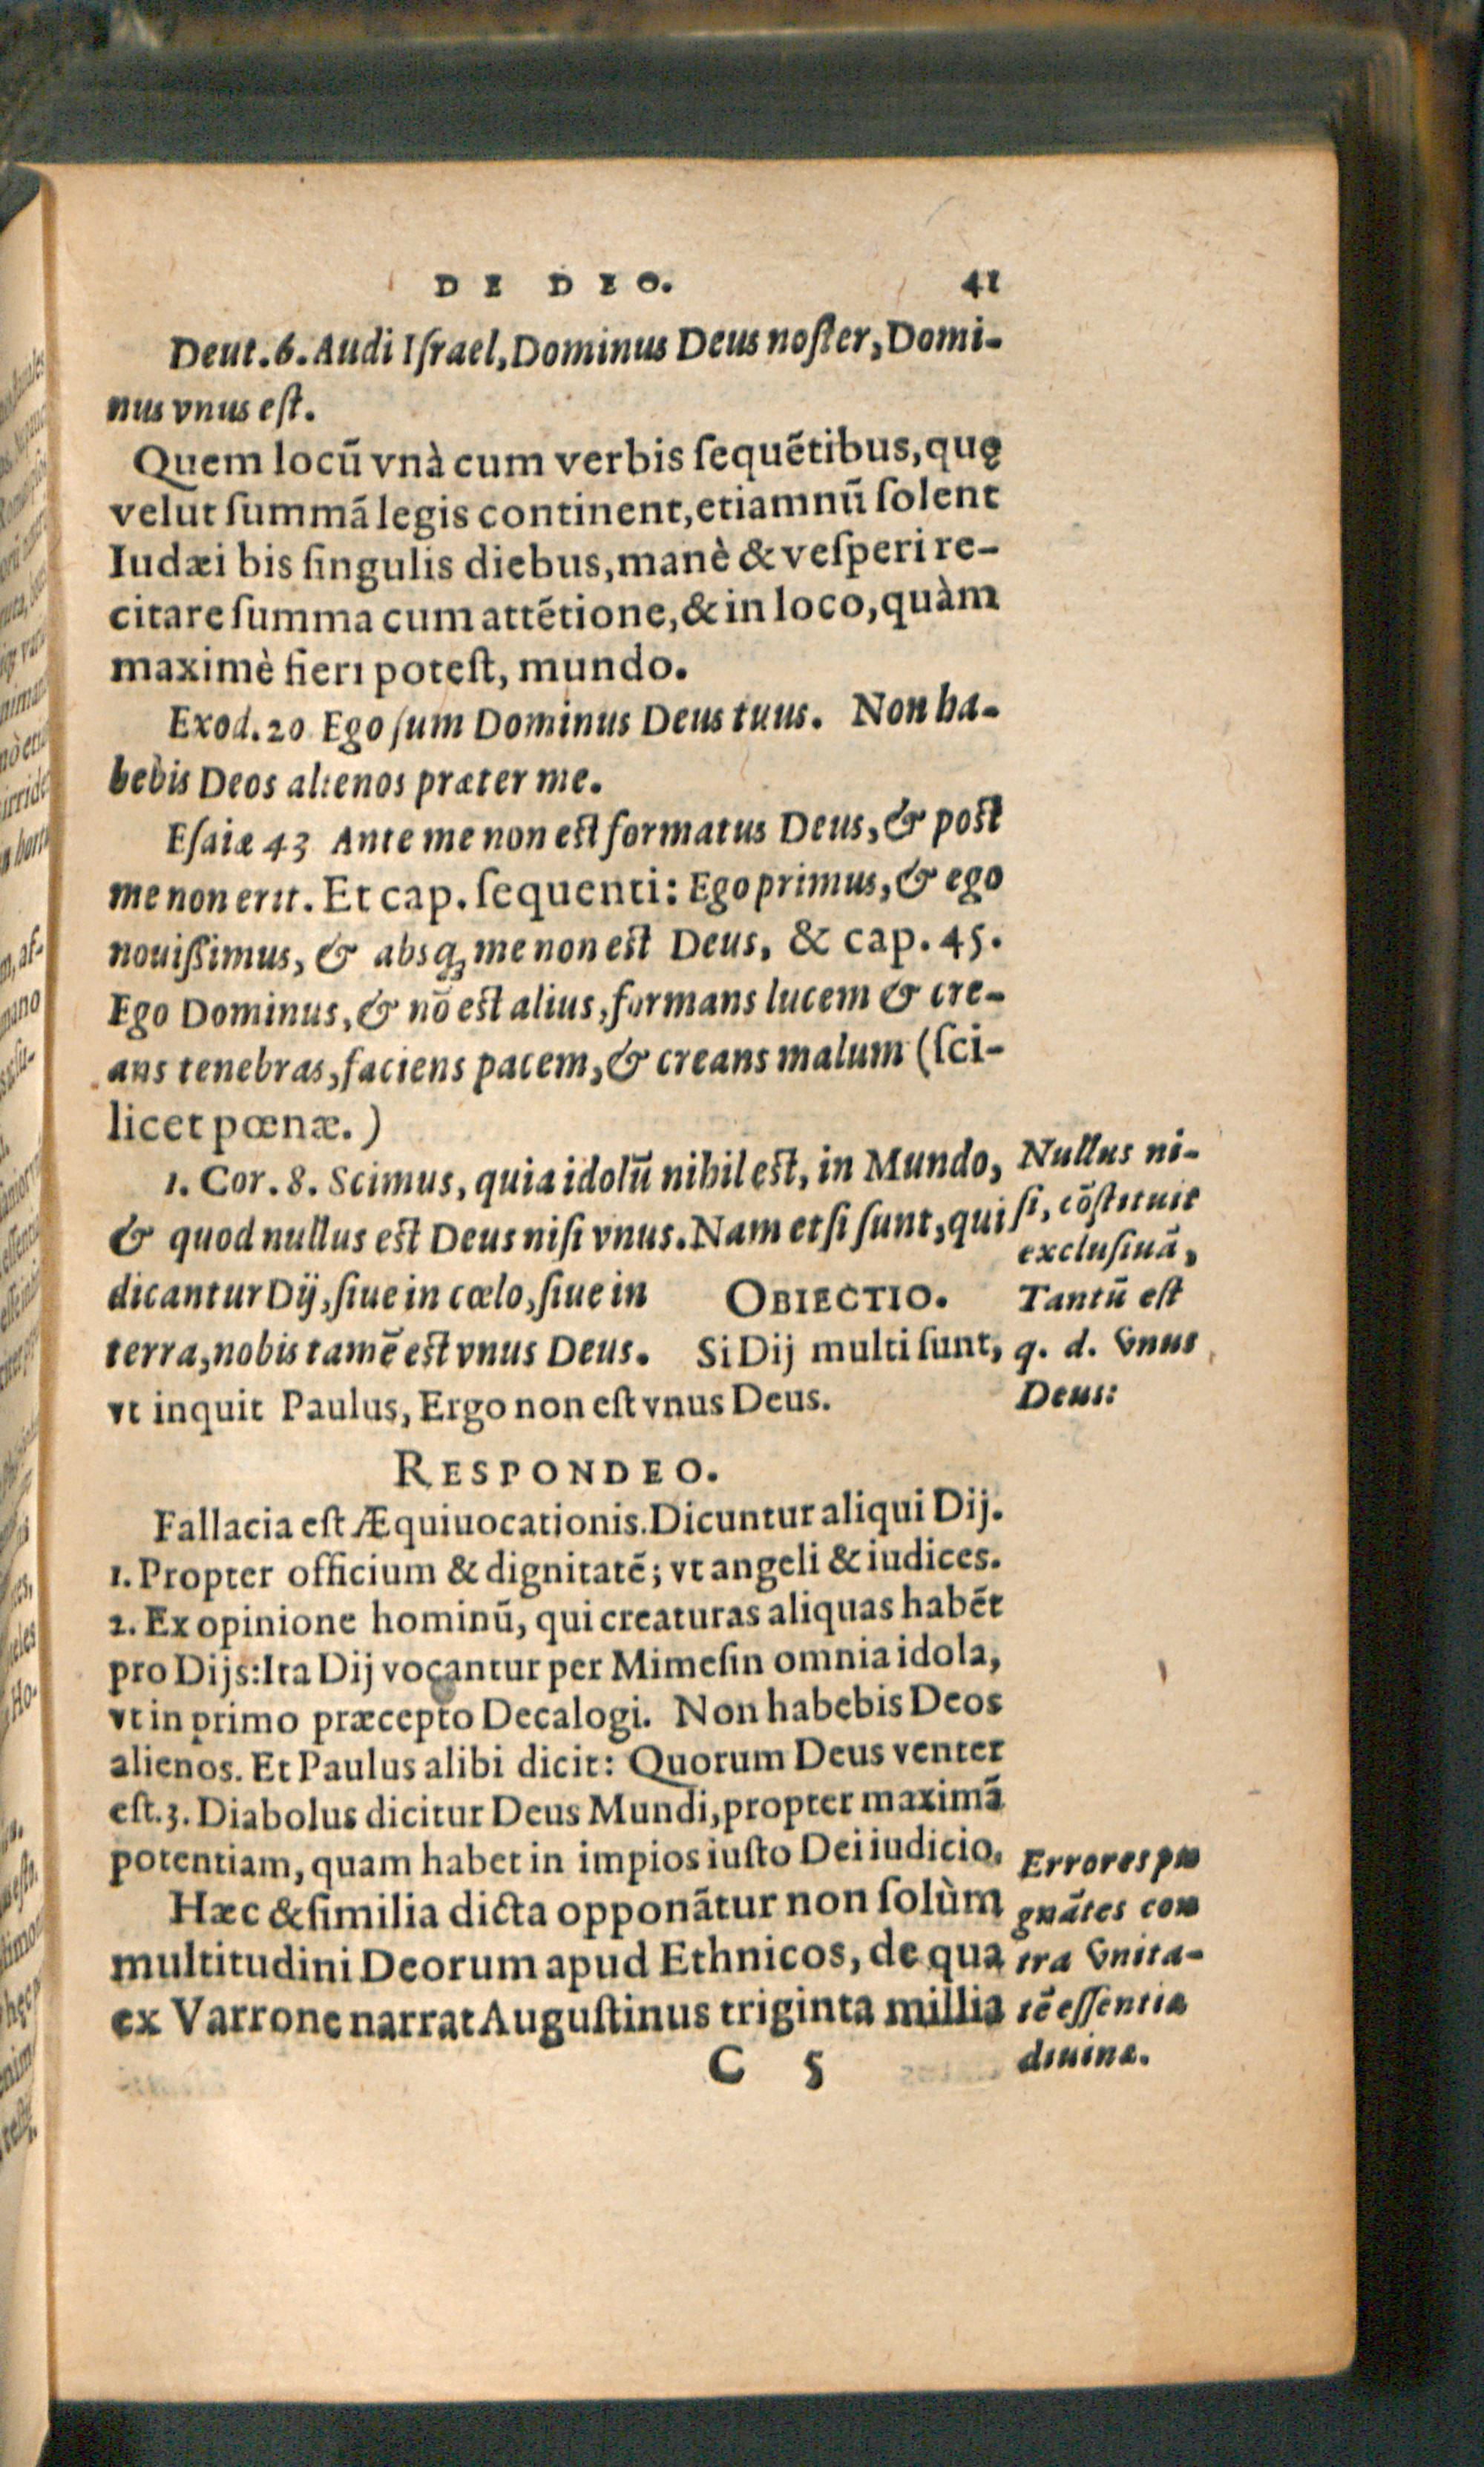 DE DEO. 41
Deut. 6. Audi Iſrael, Dominus Deus noſter, Domi-
nus vnus eſt.
Quem locũ vnà cum verbis ſequẽtibus, quę
velut ſummã legis continent, etiamnũ ſolent
Iudæi bis ſingulis diebus, manè & veſperi re-
citare ſumma cum attẽtione, & in loco, quàm
maximè fieri poteſt, mundo.
Exod. 20 Ego ſum Dominus Deus tuus. Non ha-
bebis Deos alienos præter me.
Eſaiæ 43 Ante me non eſt formatus Deus, & poſt
me non erit. Et cap. ſequenti: Ego primus, & ego
nouiſſimus, & absq; me non eſt Deus, & cap. 45.
Ego Dominus, & nõ eſt alius, formans lucem & cre-
ans tenebras, faciens pacem, & creans malum (ſci-
licet pœnæ.)
1. Cor. 8. Scimus, quia idolũ nihil eſt, in Mundo,
& quod nullus eſt Deus niſi vnus. Nam etſi ſunt, qui
dicantur Dij, ſiue in cœlo, ſiue in
terra, nobis tamẽ eſt vnus Deus.
OBIECTIO.
Si Dij multi ſunt,
vt inquit Paulus, Ergo non eſt vnus Deus.
Nullus ni-
ſi, cõſtituit
excluſiuã,
Tantũ eſt
q. d. vnus
Deus:
RESPONDEO.
Fallacia eſt Æquiuocationis. Dicuntur aliqui Dij.
1. Propter officium & dignitatẽ; vt angeli & iudices.
2. Ex opinione hominũ, qui creaturas aliquas habẽt
pro Dijs: Ita Dij vocantur per Mimeſin omnia idola,
vt in primo præcepto Decalogi. Non habebis Deos
alienos. Et Paulus alibi dicit: Quorum Deus venter
eſt. 3. Diabolus dicitur Deus Mundi, propter maximã
potentiam, quam habet in impios iuſto Dei iudicio.
Hæc & ſimilia dicta opponãtur non ſolùm
multitudini Deorum apud Ethnicos, de qua
ex Varrone narrat Auguſtinus triginta millia
Errores pu
gnãtes con
tra vnita-
tẽ eſſentiæ
diuinæ.
C 5